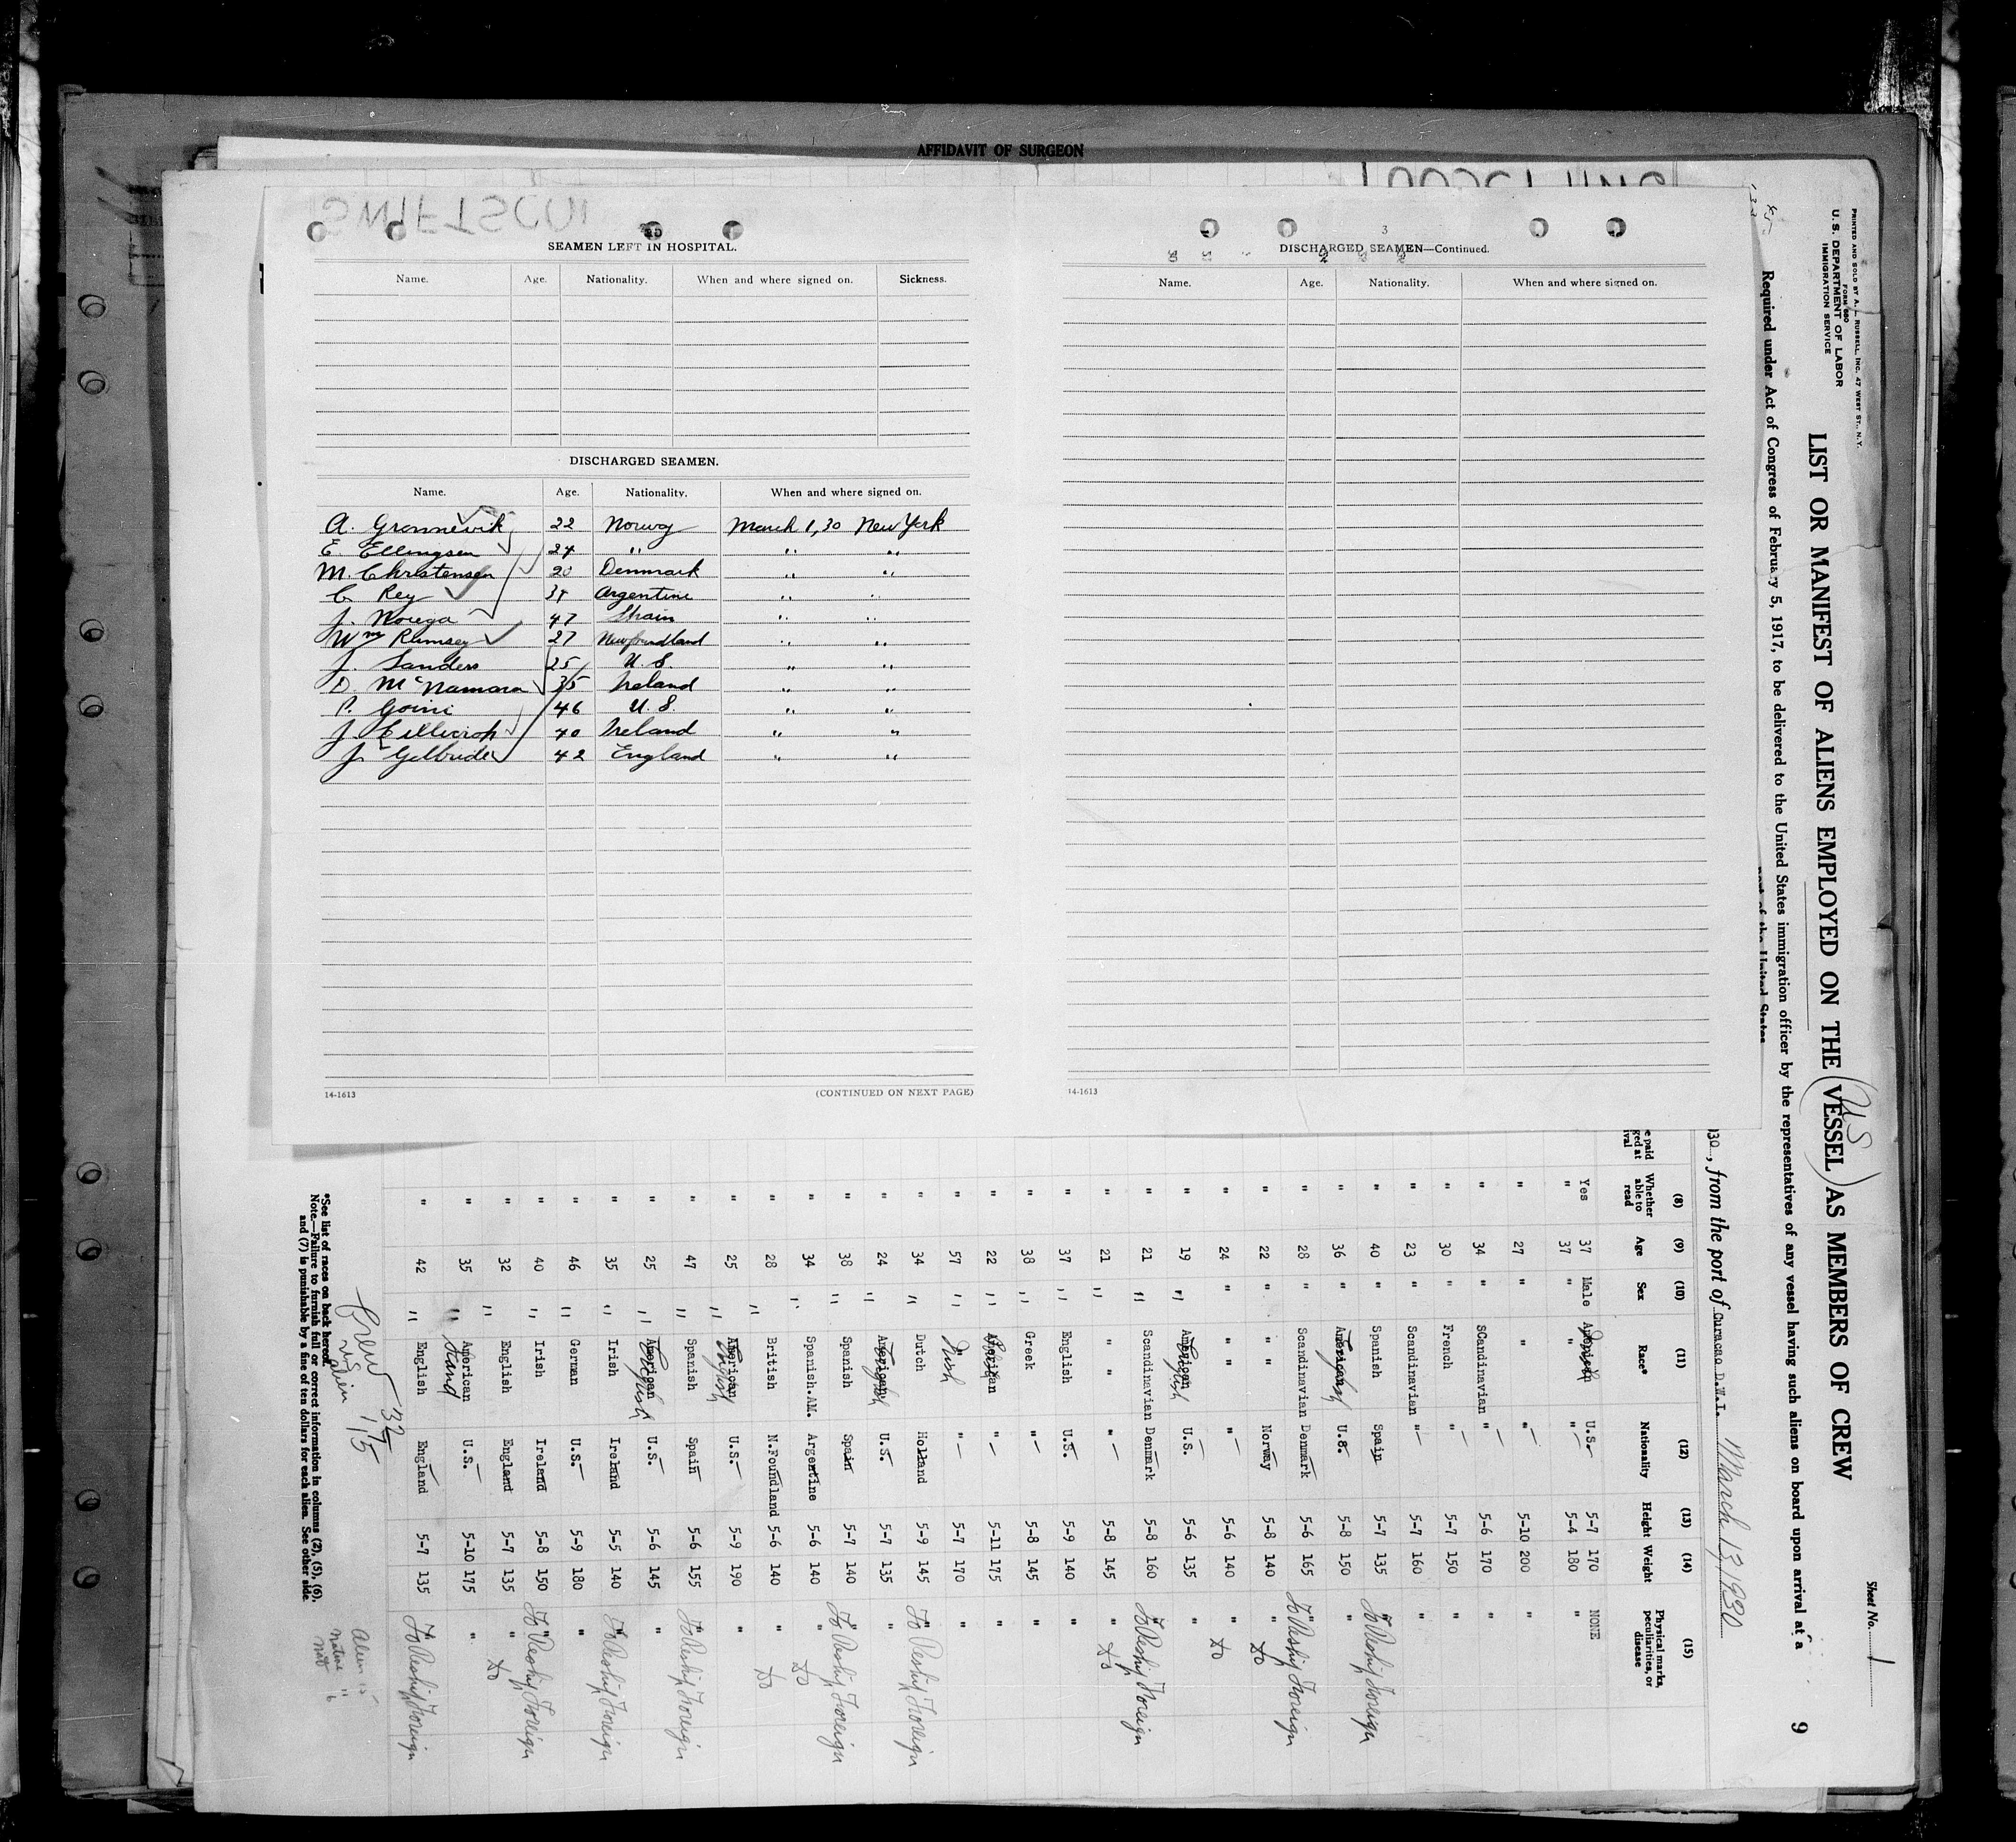 AFFIDAVIT OF SURGEON
SWIFTSCOUT
SEAMEN LEFT IN HOSPITAL.
Name. Age. Nationality. When and where signed on. Sickness.
DISCHARGED SEAMEN.
Name. Age. Nationality. When and where signed on.
A. Gronnevik 22 Norway March 1, 30 New York
E. Ellingsen 24 " " "
M. Christensen 20 Denmark " "
C. Rey 35 Argentine " "
J. Noriega 47 Spain " "
Wm Rumsey 27 Newfoundland " "
J. Sanders 25 U.S. " "
D. McNamara 35 Ireland " "
P. Goini 46 U.S. " "
J. 40 Ireland " "
J. Gilbride 42 England " "
14-1613 (CONTINUED ON NEXT PAGE)
3
DISCHARGED SEAMEN—Continued.
Name. Age. Nationality. When and where signed on.
14-1613
PRINTED AND SOLD BY A. L. RUSSELL, INC. 47 WEST ST., N.Y.
FORM 680
U.S. DEPARTMENT OF LABOR
IMMIGRATION SERVICE
Sheet No. 1
9
LIST OR MANIFEST OF ALIENS EMPLOYED ON THE VESSEL AS MEMBERS OF CREW
US
Required under Act of Congress of February 5, 1917, to be delivered to the United States immigration officer by the representatives of any vessel having such aliens on board upon arrival at a
port of the United States
30, from the port of Curacao D.W.I. March 13, 1930
(8) (9) (10) (11) (12) (13) (14) (15)
Whether able to read Age Sex Race* Nationality Height Weight Physical marks, peculiarities, or disease
Yes 37 Male U.S. 5-7 170 NONE
" 37 " " " 5-4 180 "
" 27 " " " 5-10 200 "
" 34 " SCandinavian " 5-6 170 "
" 30 " French " 5-7 150 "
" 23 " Scandinavian " 5-7 160 "
" 40 " Spanish Spain 5-7 135 " To Reship Foreign
" 36 " American English U.S. 5-8 150 "
" 28 " Scandinavian Denmark 5-6 165 " To Reship Foreign
" 22 " " Norway 5-8 140 " do
" 24 " " " 5-6 140 " do
" 19 " American English U.S. 5-6 135 "
" 21 " Scandinavian Denmark 5-8 160 " To Reship Foreign
" 21 " " " 5-8 145 " do
" 37 " English U.S. 5-9 140 "
" 38 " Greek " 5-8 145 "
" 22 " American " 5-11 175 "
" 57 " Irish " 5-7 170 "
" 34 " Dutch Holland 5-9 145 " To Reship Foreign
" 24 " American English U.S. 5-7 135 "
" 38 " Spanish Spain 5-7 140 " To Reship Foreign
" 34 " Spanish.AM. Argentine 5-6 140 " do
" 28 " British N.Foundland 5-6 140 " do
" 25 " American English U.S. 5-9 190 "
" 47 " Spanish Spain 5-6 155 " To Reship Foreign
" 25 " American English U.S. 5-6 145 "
" 35 " Irish Ireland 5-5 140 " To Reship Foreign
" 46 " German U.S. 5-9 180 "
" 40 " Irish Ireland 5-8 150 " To Reship Foreign
" 32 " English England 5-7 135 " do
" 35 " American U.S. 5-10 175 "
" 42 " English England 5-7 135 To Reship Foreign
Crew 32
US
alien 15
Alien 15
Native "
Nat 6
*See list of races on back hereof.
Note.—Failure to furnish full or correct information in columns (2), (5), (6),
and (7) is punishable by a fine of ten dollars for each alien. See other side.